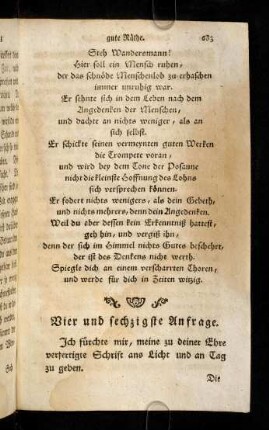 gute Räthe.
Steh Wandersmann!
Hier soll ein Mensch ruhen,
der das schnöde Menschenlob zu erhaschen
immer unruhig war.
Er sehnte sich in dem Leben nach dem
Angedenken der Menschen,
und dachte an nichts weniger, als an
sich selbst.
Er schickte seinen vermeynten guten Werken
die Trompete voran,
und wird bey dem Tone der Posaune
nicht die kleinste Hoffnung des Lohns
sich versprechen können.
Er fodert nichts wenigers, als dein Gebeth,
und nichts mehrers, denn dein Angedenken.
Weil du aber dessen kein Erkenntniß hattest,
geh hin, und vergiß ihn,
denn der sich im Himmel nichts Gutes beschehrt,
der ist des Denkens nicht werth.
Spiegle dich an einem verscharrten Thoren,
und werde für dich in Zeiten witzig.
Vier und sechzigste Anfrage.
Ich fürchte mir, meine zu deiner Ehre
verfertigte Schrift ans Licht und an Tag
zu geben.
Die